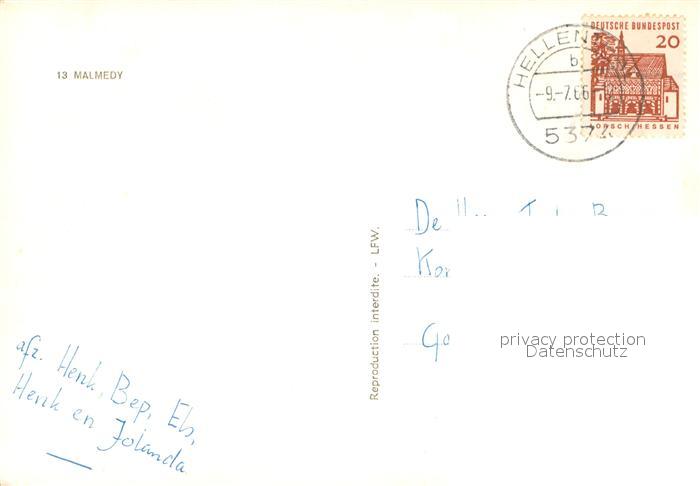 13 MALMEDY
DEUTSCHE BUNDESPOST
20
LORSCH/HESSEN
b
-9.-7.66
537
Reproduction interdite. - LFW.
De
privacy protection
Datenschutz
afz. Henk, Bep, Els,
Henk en Jolanda